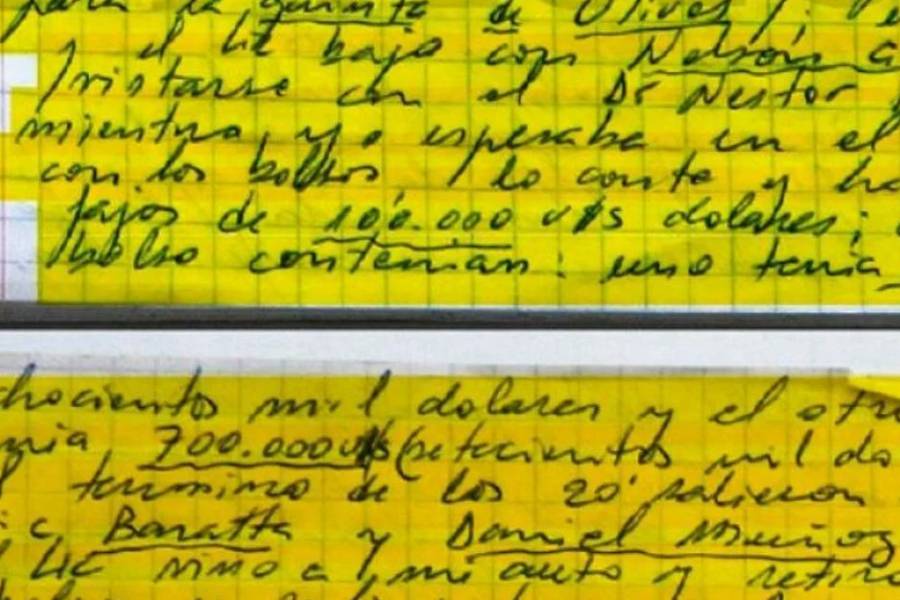 para la quinta de Olivos
y el Lic bajo con Nelson
con el Dr Nestor
mientras, yo esperaba en el
con los bolsos, lo conte y
fajos de 100.000 U$S dolares;
bolso contenian: uno tenia
chocientos mil dolares y el otro
nia 700.000 U$S (setecientos mil do
termino de los 20' salieron
Baratta y Daniel Muñoz
Lic vino a mi auto y retir